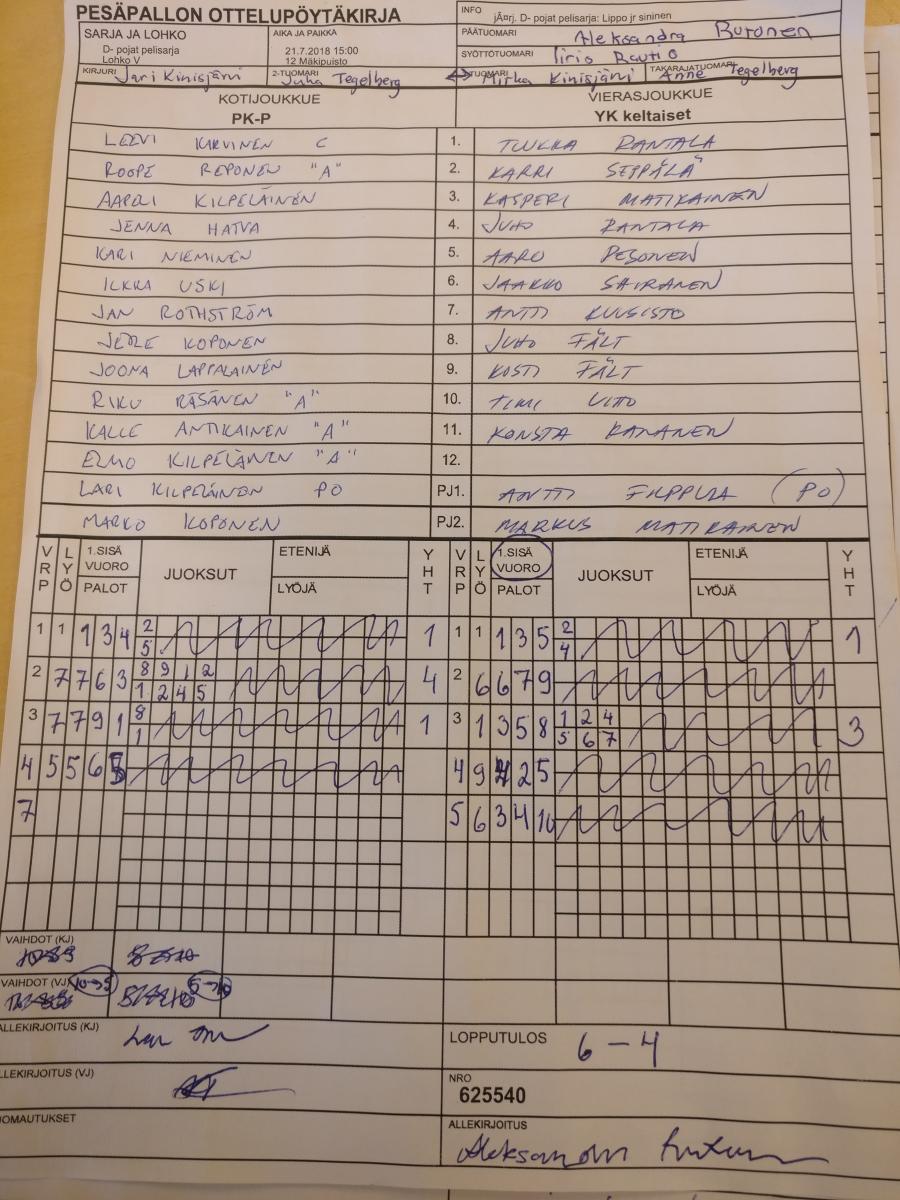 PESÄPALLON OTTELUPÖYTÄKIRJA
INFO
jÃ¤rj. D- pojat pelisarja: Lippo jr sininen
SARJA JA LOHKO
D- pojat pelisarja
Lohko V
AIKA JA PAIKKA
21.7.2018 15:00
12 Mäkipuisto
PÄÄTUOMARI Aleksandra Buronen
SYÖTTÖTUOMARI Iiris Rautio
KIRJURI Jari Kinisjärvi
2-TUOMARI Juha Tegelberg
TUOMARI Mirka Kinisjärvi
TAKARAJATUOMARI Anne Tegelberg
KOTIJOUKKUE
PK-P
VIERASJOUKKUE
YK keltaiset
LEEVI KARVINEN C 1. TUUKKA RANTALA
ROOPE REPONEN "A" 2. KARRI SEPPÄLÄ
AAPRI KILPELÄINEN 3. KASPERI MATIKAINEN
JENNA HATVA 4. JUHO RANTALA
KARI NIEMINEN 5. AARO PESONEN
ILKKA USKI 6. JAAKKO SAIRANEN
JAN ROTHSTRÖM 7. ANTTI KUUSISTO
JEDE KOPONEN 8. JUHO FÄLT
JOONA LAPPALAINEN 9. KOSTI FÄLT
RIKU RÄSÄNEN "A" 10. TIMI
KALLE ANTIKAINEN "A" 11. KONSTA KANANEN
ELMO KILPELÄINEN "A" 12.
LARI KILPELÄINEN PO PJ1. ANTTI FILPPULA (PO)
MARKO KOPONEN PJ2. MARKUS MATIKAINEN
VRP LYÖ 1.SISÄ VUORO PALOT JUOKSUT ETENIJÄ LYÖJÄ YHT VRP LYÖ 1.SISÄ VUORO PALOT JUOKSUT ETENIJÄ LYÖJÄ YHT
1 1 1 3 4 2 1 1 1 1 3 5 2 1
5 4
2 7 7 6 3 8 9 1 2 4 2 6 6 7 9
1 2 4 5
3 7 7 9 1 8 1 3 1 3 5 8 1 2 4 3
1 5 6 7
4 5 5 6 4 9 2 5
7 5 6 3 4 10
VAIHDOT (KJ)
VAIHDOT (VJ) 10→5 5→10
ALLEKIRJOITUS (KJ)
LOPPUTULOS 6 - 4
LLEKIRJOITUS (VJ)
NRO
625540
UOMAUTUKSET
ALLEKIRJOITUS